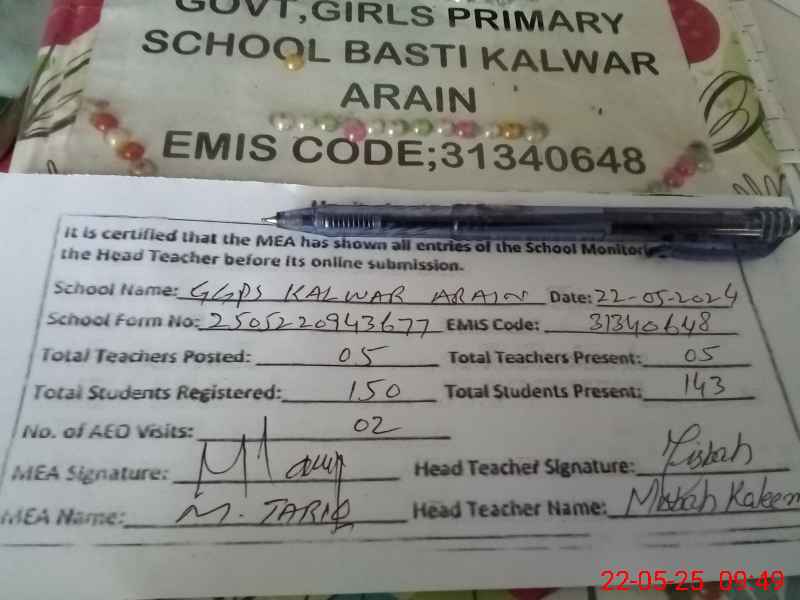 GOVT,GIRLS PRIMARY
SCHOOL BASTI KALWAR
ARAIN
EMIS CODE;31340648
It is certified that the MEA has shown all entries of the School Monitoring
the Head Teacher before its online submission.
School Name: GGPS KALWAR ARAIN Date: 22-05-2024
School Form No: 2505220943677 EMIS Code: 31340648
Total Teachers Posted: 05 Total Teachers Present: 05
Total Students Registered: 150 Total Students Present: 143
No. of AEO Visits: 02
MEA Signature: Head Teacher Signature: Misbah
MEA Name: M. TARIQ Head Teacher Name: Misbah Kaleem
22-05-25 09:49